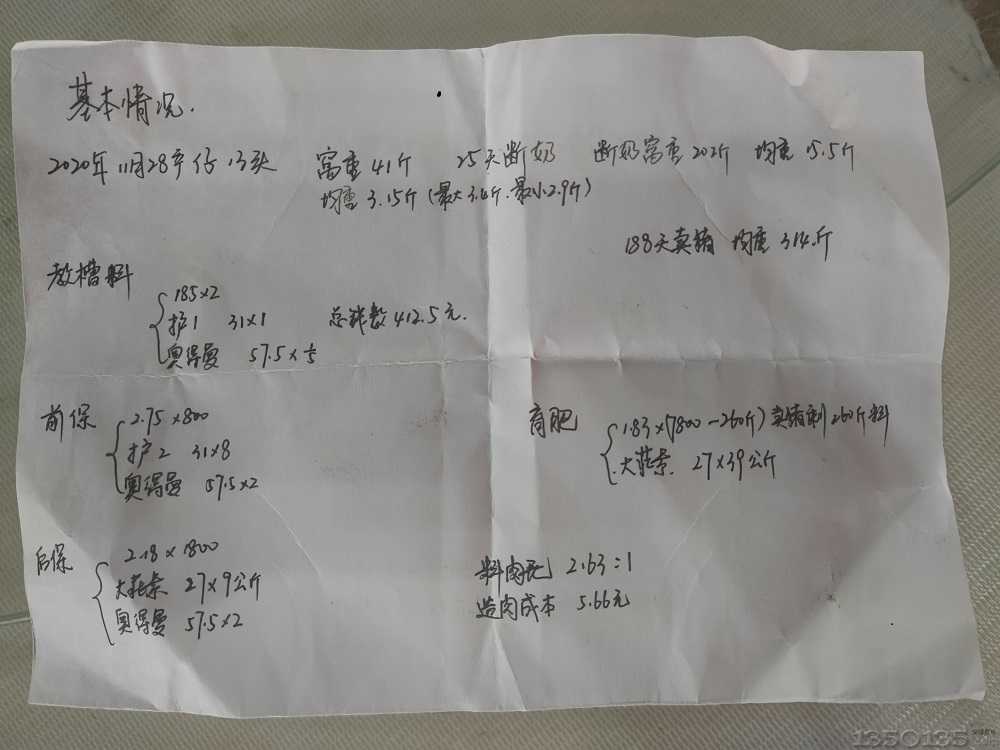 基本情况.
2020年11月28产仔13头 窝重41斤 25天断奶 断奶窝重202斤 均重15.5斤
均重3.15斤(最大3.4斤.最小2.9斤)
188天卖猪 均重314斤
教槽料
185×2
护1 31×1 总钱数412.5元.
奥得曼 57.5×1/5
前保
2.75×800
护2 31×8
奥得曼 57.5×2
育肥
1.83×(7800-260斤)卖猪剩260斤料
大荘景. 27×39公斤
后保
2.18×1800
大荘景 27×9公斤
奥得曼 57.5×2
料肉比 2.63:1
造肉成本 5.66元
1350135